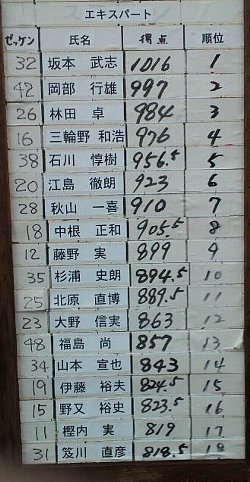 エキスパート
ゼッケン 氏名 得点 順位
32 坂本 武志 1016 1
42 岡部 行雄 997 2
26 林田 卓 984 3
16 三輪野 和浩 976 4
38 石川 惇樹 956.5 5
20 江島 徹朗 923 6
28 秋山 一喜 910 7
18 中根 正和 905.5 8
12 藤野 実 899 9
35 杉浦 史朗 894.5 10
25 北原 直博 889.5 11
23 大野 信実 863 12
48 福島 尚 857 13
34 山本 宣也 843 14
19 伊藤 裕夫 824.5 15
15 野又 裕史 823.5 16
11 樫内 実 819 17
31 笈川 直彦 818.5 18